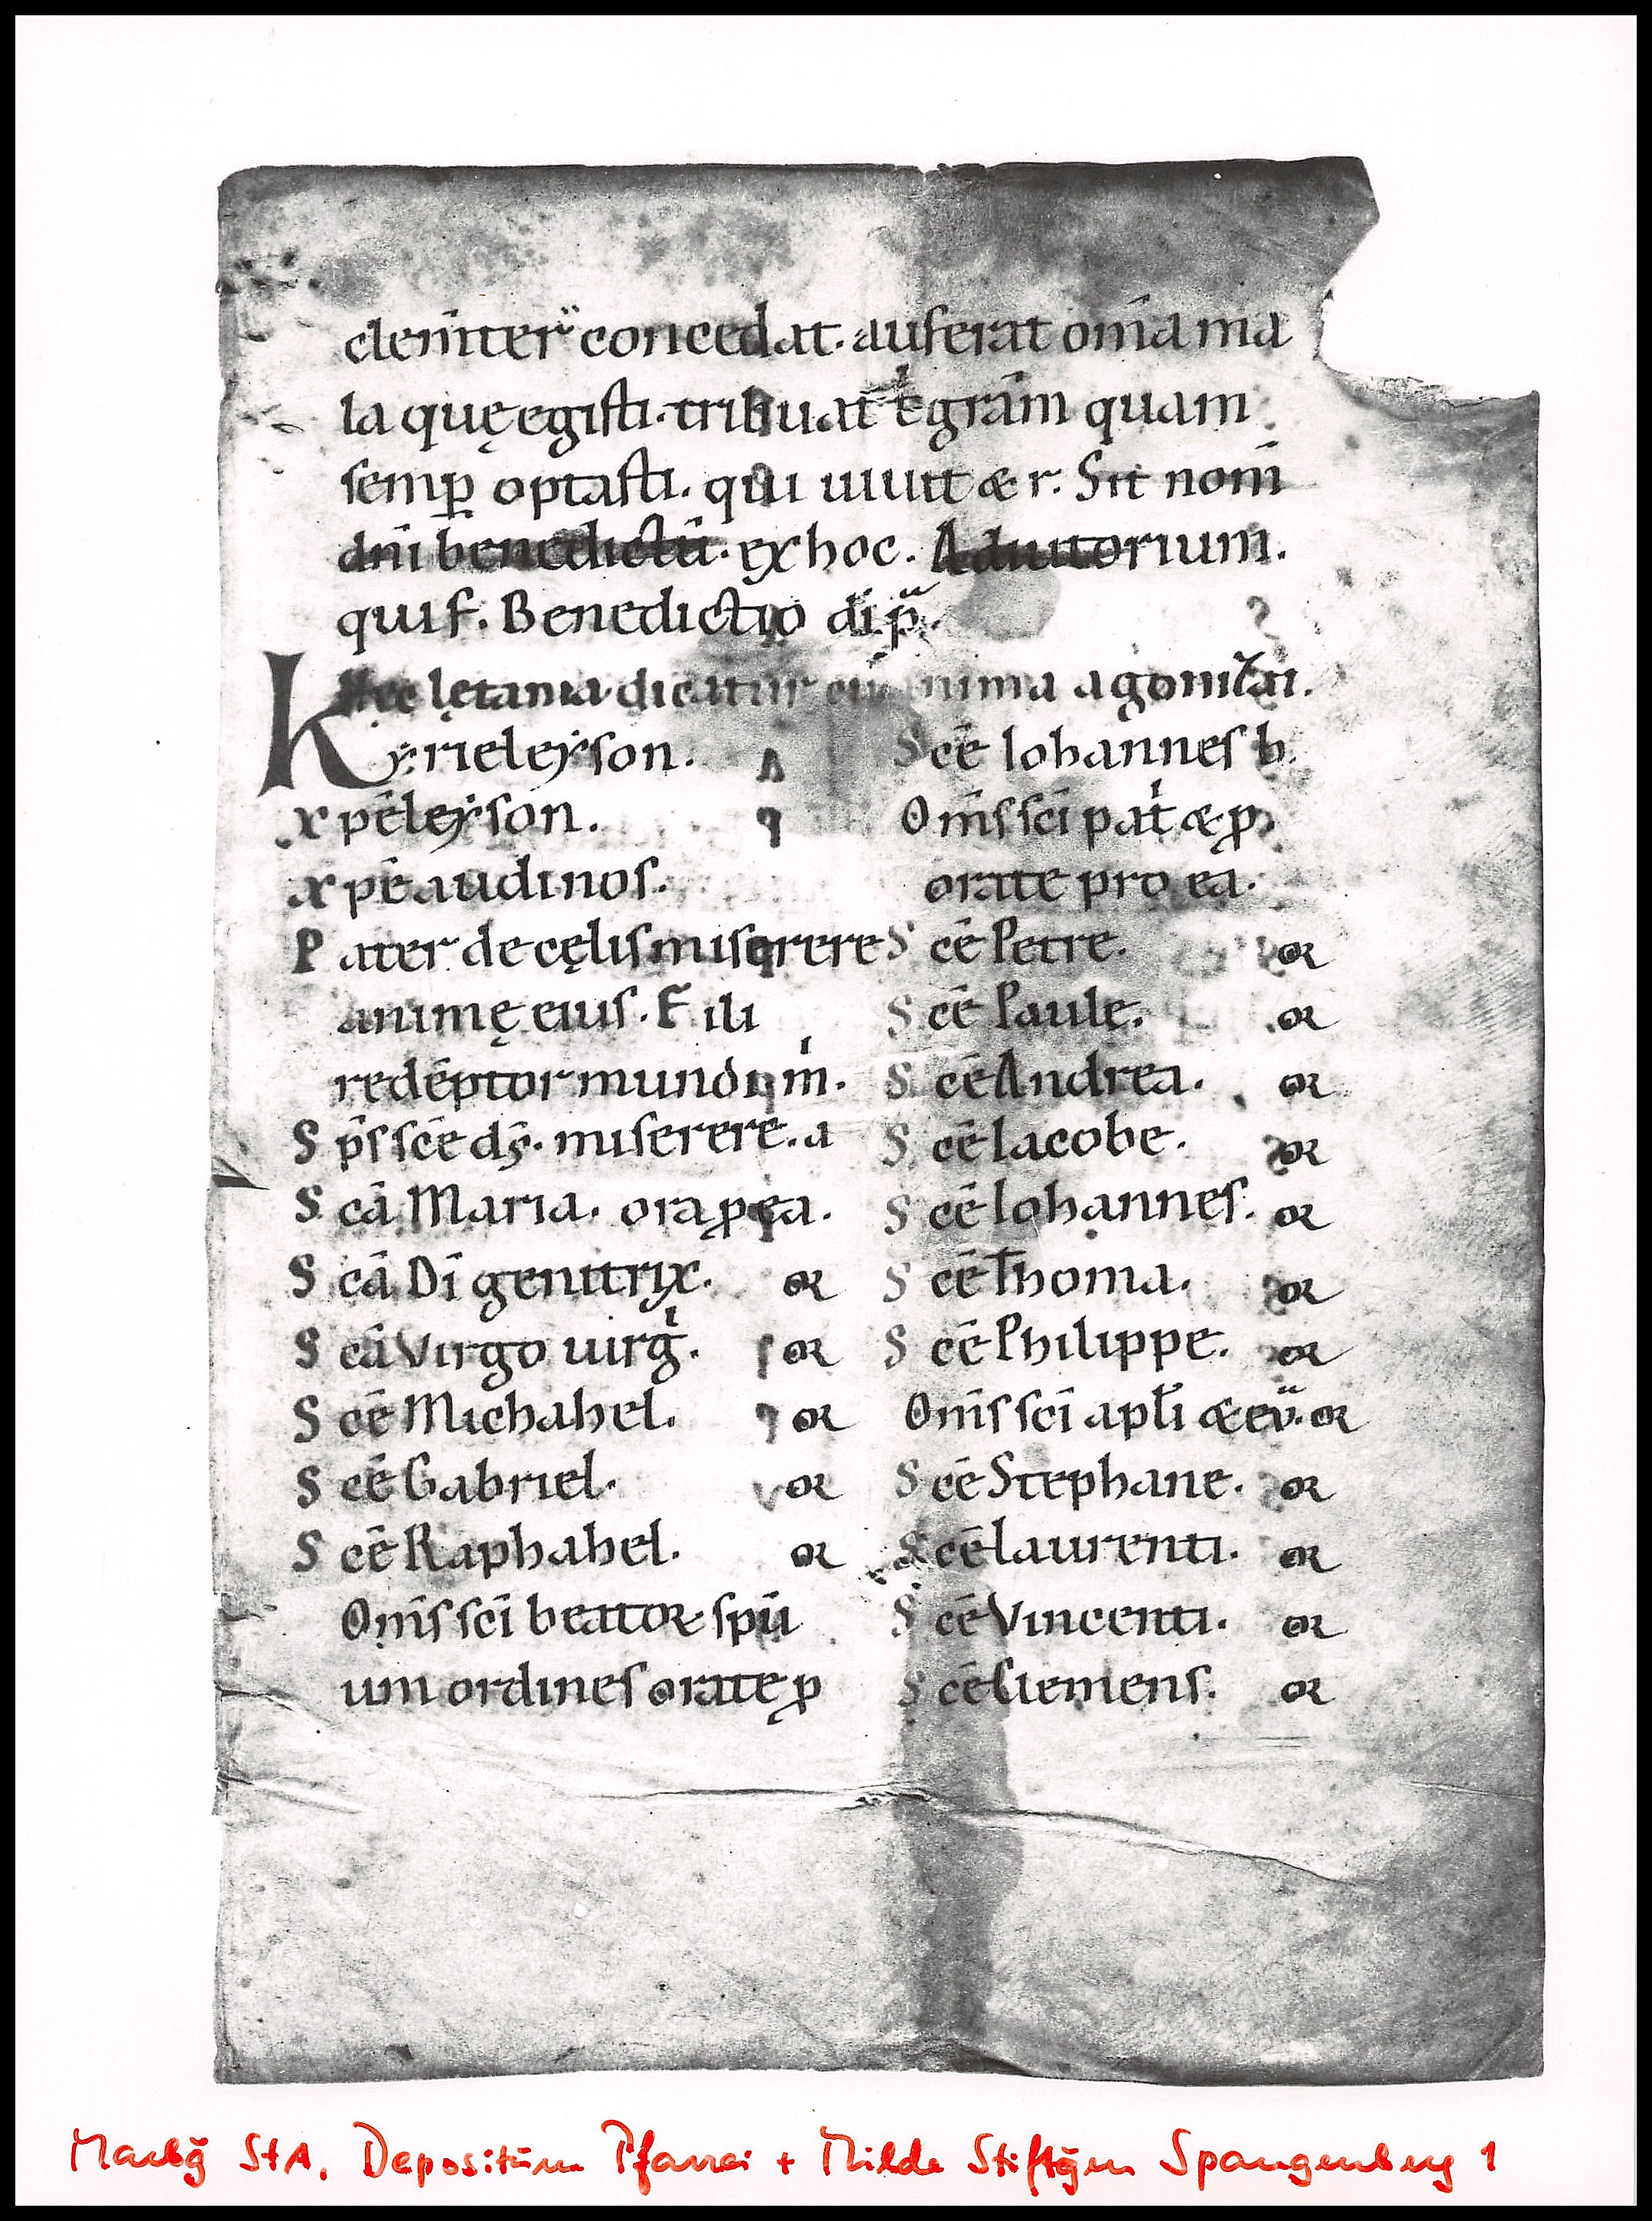 clemter concedat. auferat om̄ia ma
la quę egisti. tribuat t̾ gr̄am quam
semꝑ optasti. qui uiuit & r. Sit nom̄
dn̄i benedictū. ex hoc. Adiutorium.
qui f. Benedictio di p̄.
Hec letania dicatur anima agonizāti.
Kyrieleyson.
xp̄eleyson.
xp̄e audi nos.
Pater de cęlis miserere
animę eius. Fili
redēptor mundi m̄.
Sp̄s sc̄e ds. miserere. a
Sc̄a Maria. ora ꝓ ea.
Sc̄a Dī genitrix. oꝛ
Sc̄a Virgo uirḡ. oꝛ
Sc̄e Michahel. oꝛ
Sc̄e Gabriel. oꝛ
Sc̄e Raphahel. oꝛ
Om̄s sc̄i beatoꝝ spū
um ordines orate ꝓ
Sc̄e Iohannes b.
Om̄s sc̄i pat̾ & ꝓ
orate pro ea.
Sc̄e Petre. oꝛ
Sc̄e Paule. oꝛ
Sc̄e Andrea. oꝛ
Sc̄e Iacobe. oꝛ
Sc̄e Iohannes. oꝛ
Sc̄e Thoma. oꝛ
Sc̄e Philippe. oꝛ
Om̄s sc̄i apl̄i & eū. oꝛ
Sc̄e Stephane. oꝛ
Sc̄e Laurenti. oꝛ
Sc̄e Vincenti. oꝛ
Sc̄e Clemens. oꝛ
Marbg̃ StA. Depositum Pfarrei + Milde Stiftg̃en Spangenberg 1